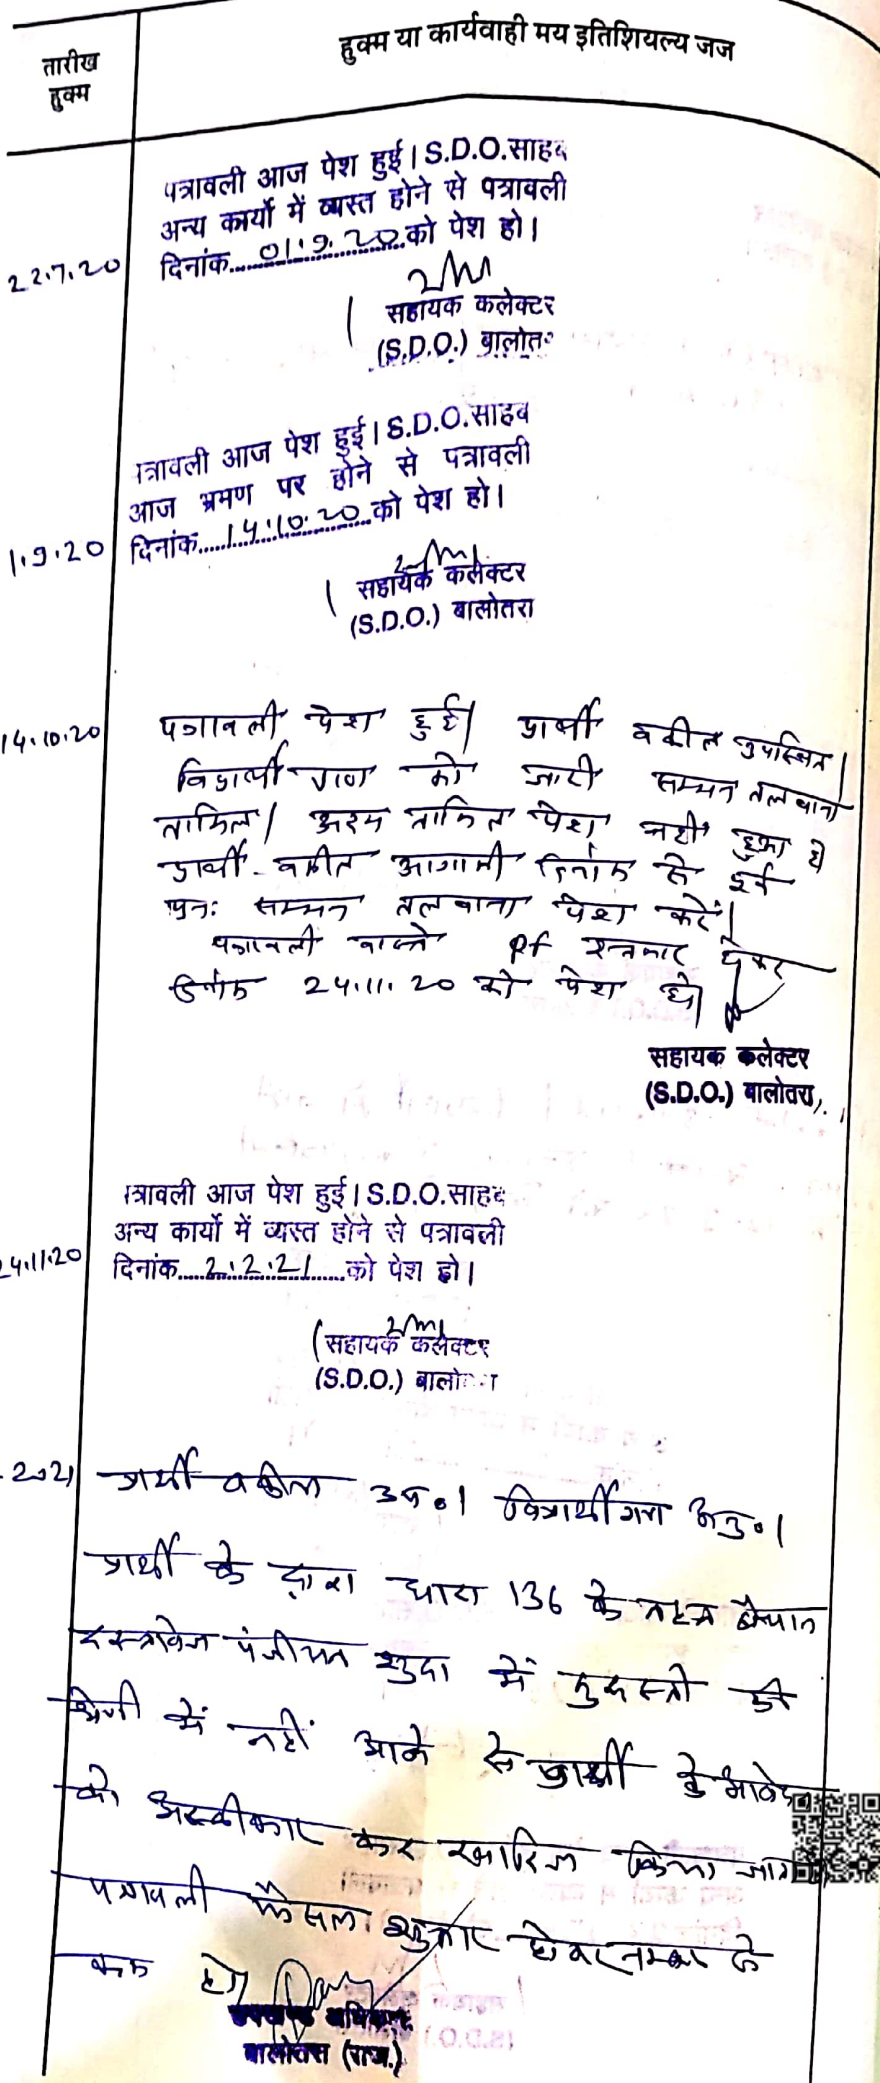 तारीख
हुक्म
हुक्म या कार्यवाही मय इतिशियल्य जज
22.7.20
पत्रावली आज पेश हुई। S.D.O.साहब
अन्य कार्यो में व्यस्त होने से पत्रावली
दिनांक....01.9.20....को पेश हो।
सहायक कलेक्टर
(S.D.O.) बालोत
1.9.20
पत्रावली आज पेश हुई। S.D.O.साहब
आज भ्रमण पर होने से पत्रावली
दिनांक....14.10.20....को पेश हो।
सहायक कलेक्टर
(S.D.O.) बालोतरा
14.10.20
पत्रावली पेश हुई। प्रार्थी वकील उपस्थित।
विप्रार्थी गण को जारी सम्मन तलवाना
तामिल। अदम तामिल पेश नहीं हुआ है
प्रार्थी वकील आगामी दिनांक से पूर्व
पुनः सम्मन तलवाना पेश करें।
पत्रावली वास्ते Pf इन्तजार होकर
दिनांक 24.11.20 को पेश हो।
सहायक कलेक्टर
(S.D.O.) बालोतरा
24.11.20
पत्रावली आज पेश हुई। S.D.O.साहब
अन्य कार्यो में व्यस्त होने से पत्रावली
दिनांक....2.2.21....को पेश हो।
सहायक कलेक्टर
(S.D.O.) बालो
प्रार्थी वकील उप०। विप्रार्थीगण अनु०।
प्रार्थी के द्वारा धारा 136 के तहत बेचान
दस्तावेज पंजीयन शुदा में दुरुस्ती की
श्रेणी में नहीं आने से प्रार्थी के आवेदन
को अस्वीकार कर खारिज किया जाता
पत्रावली फैसला शुमार होकर नम्बर से
कम हो।
उपखण्ड अधिकारी
बालोतरा (राज.)